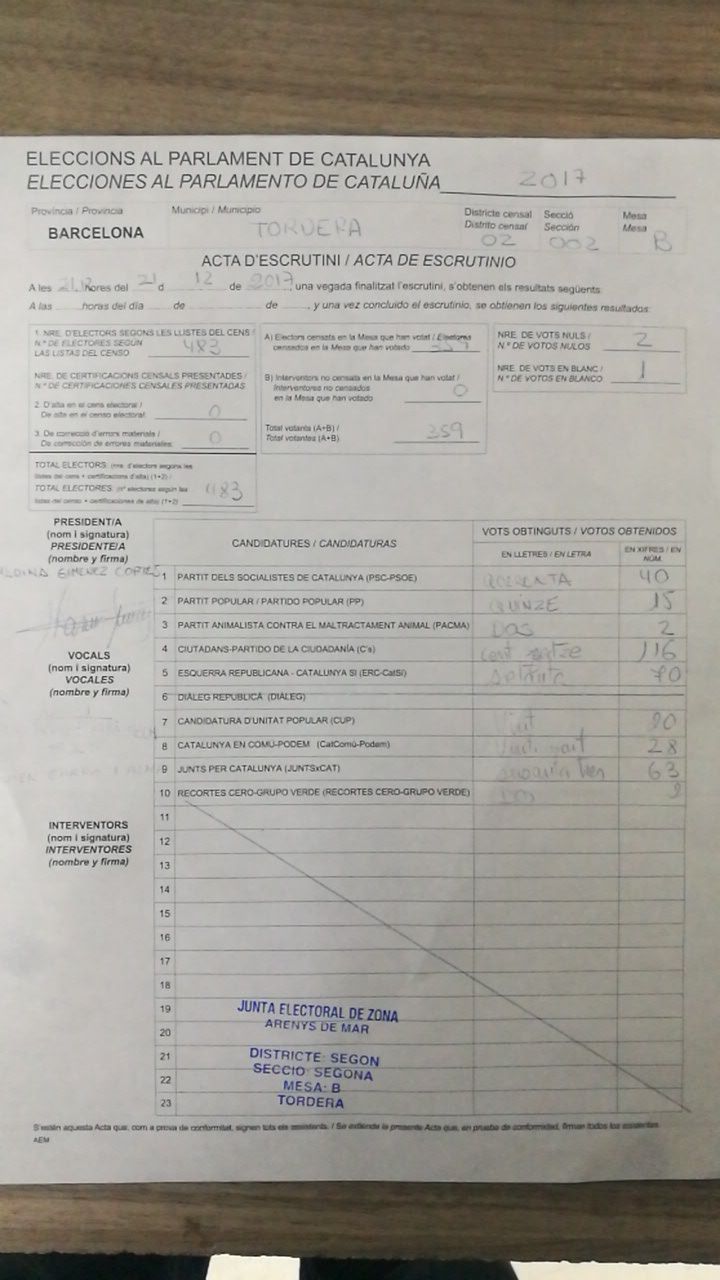 ELECCIONS AL PARLAMENT DE CATALUNYA
ELECCIONES AL PARLAMENTO DE CATALUÑA 2017
Província / Provincia
BARCELONA
Municipi / Municipio
TORDERA
Districte censal
Distrito censal
02
Secció
Sección
002
Mesa
Mesa
B
ACTA D'ESCRUTINI / ACTA DE ESCRUTINIO
A les hores del 21 d 12 de 2017, una vegada finalitzat l'escrutini, s'obtenen els resultats següents:
A las horas del día de de , y una vez concluido el escrutinio, se obtienen los siguientes resultados:
1. NRE. D'ELECTORS SEGONS LES LLISTES DEL CENS /
N.º DE ELECTORES SEGÚN
LAS LISTAS DEL CENSO 483
NRE. DE CERTIFICACIONS CENSALS PRESENTADES /
N.º DE CERTIFICACIONES CENSALES PRESENTADAS
2. D'alta en el cens electoral /
De alta en el censo electoral: 0
3. De correcció d'errors materials /
De corrección de errores materiales: 0
TOTAL ELECTORS: (nre. d'electors segons les
llistes del cens + certificacions d'alta) (1+2) /
TOTAL ELECTORES: (nº electores según las
listas del censo + certificaciones de alta) (1+2) 483
A) Electors censats en la Mesa que han votat / Electores
censados en la Mesa que han votado 359
B) Interventors no censats en la Mesa que han votat /
Interventores no censados
en la Mesa que han votado 0
Total votants (A+B) /
Total votantes (A+B) 359
NRE. DE VOTS NULS /
N.º DE VOTOS NULOS 2
NRE. DE VOTS EN BLANC /
N.º DE VOTOS EN BLANCO 1
PRESIDENT/A
(nom i signatura)
PRESIDENTE/A
(nombre y firma)
GIMENEZ
VOCALS
(nom i signatura)
VOCALES
(nombre y firma)
INTERVENTORS
(nom i signatura)
INTERVENTORES
(nombre y firma)
CANDIDATURES / CANDIDATURAS
VOTS OBTINGUTS / VOTOS OBTENIDOS
EN LLETRES / EN LETRA
EN XIFRES / EN NÚM.
1 PARTIT DELS SOCIALISTES DE CATALUNYA (PSC-PSOE) QUARENTA 40
2 PARTIT POPULAR / PARTIDO POPULAR (PP) QUINZE 15
3 PARTIT ANIMALISTA CONTRA EL MALTRACTAMENT ANIMAL (PACMA) DOS 2
4 CIUTADANS-PARTIDO DE LA CIUDADANÍA (C's) cent setze 116
5 ESQUERRA REPUBLICANA - CATALUNYA SÍ (ERC-CatSí) setanta 70
6 DIÀLEG REPUBLICÀ (DIÀLEG)
7 CANDIDATURA D'UNITAT POPULAR (CUP) Vint 20
8 CATALUNYA EN COMÚ-PODEM (CatComú-Podem) Vint-i-vuit 28
9 JUNTS PER CATALUNYA (JUNTSxCAT) tres 63
10 RECORTES CERO-GRUPO VERDE (RECORTES CERO-GRUPO VERDE) DOS 2
11
12
13
14
15
16
17
18
19
20
21
22
23
JUNTA ELECTORAL DE ZONA
ARENYS DE MAR
DISTRICTE: SEGON
SECCIO: SEGONA
MESA: B
TORDERA
S'estén aquesta Acta que, com a prova de conformitat, signen tots els assistents. / Se extiende la presente Acta que, en prueba de conformidad, firman todos los asistentes.
AEM